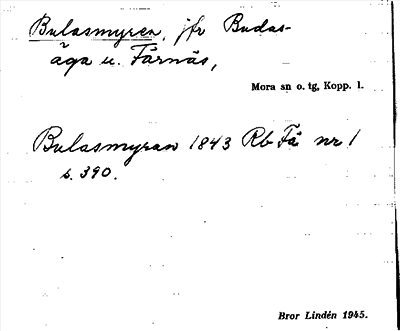 Bulasmyren, jfr Budas-
äga u. Färnäs,
Mora sn o. tg, Kopp. l.
Bulasmyran 1843 Rb Fä nr 1
s. 390.
Bror Lindén 1945.